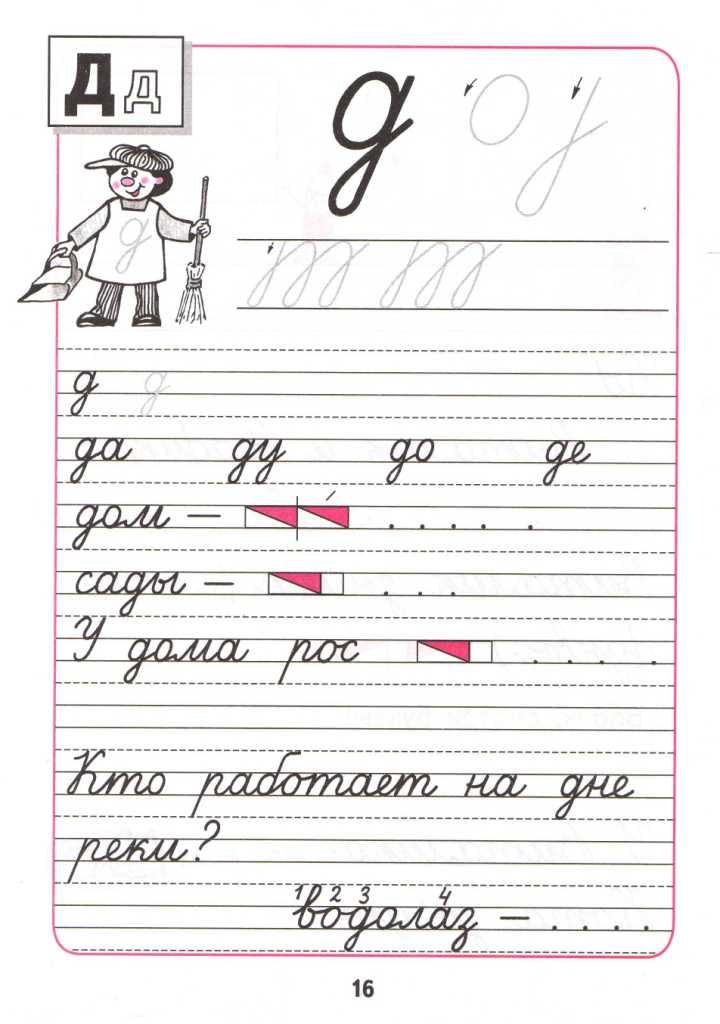 Д д
д
д
д д
да ду до де
дом —
сады —
У дома рос
Кто работает на дне
реки?
1 2 3 4
водолаз —
16